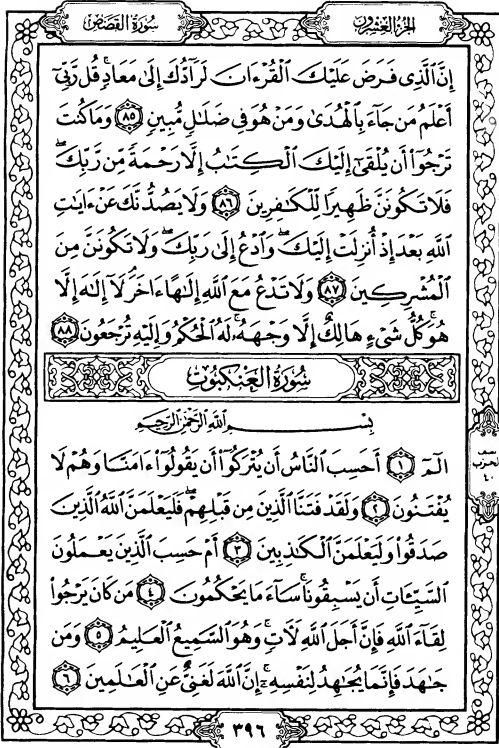 سُورَةُ القَصَصِ
الجُزْءُ العِشْرُون
إِنَّ ٱلَّذِى فَرَضَ عَلَيْكَ ٱلْقُرْءَانَ لَرَآدُّكَ إِلَىٰ مَعَادٍ ۚ قُل رَّبِّىٓ
أَعْلَمُ مَن جَآءَ بِٱلْهُدَىٰ وَمَنْ هُوَ فِى ضَلَٰلٍ مُّبِينٍ ٨٥ وَمَا كُنتَ
تَرْجُوٓا۟ أَن يُلْقَىٰٓ إِلَيْكَ ٱلْكِتَٰبُ إِلَّا رَحْمَةً مِّن رَّبِّكَ ۖ
فَلَا تَكُونَنَّ ظَهِيرًا لِّلْكَٰفِرِينَ ٨٦ وَلَا يَصُدُّنَّكَ عَنْ ءَايَٰتِ
ٱللَّهِ بَعْدَ إِذْ أُنزِلَتْ إِلَيْكَ ۖ وَٱدْعُ إِلَىٰ رَبِّكَ ۖ وَلَا تَكُونَنَّ مِنَ
ٱلْمُشْرِكِينَ ٨٧ وَلَا تَدْعُ مَعَ ٱللَّهِ إِلَٰهًا ءَاخَرَ ۘ لَآ إِلَٰهَ إِلَّا
هُوَ ۚ كُلُّ شَىْءٍ هَالِكٌ إِلَّا وَجْهَهُۥ ۚ لَهُ ٱلْحُكْمُ وَإِلَيْهِ تُرْجَعُونَ ٨٨
سُورَةُ العَنكَبُوت
بِسْمِ ٱللَّهِ ٱلرَّحْمَٰنِ ٱلرَّحِيمِ
الٓمٓ ١ أَحَسِبَ ٱلنَّاسُ أَن يُتْرَكُوٓا۟ أَن يَقُولُوٓا۟ ءَامَنَّا وَهُمْ لَا
يُفْتَنُونَ ٢ وَلَقَدْ فَتَنَّا ٱلَّذِينَ مِن قَبْلِهِمْ ۖ فَلَيَعْلَمَنَّ ٱللَّهُ ٱلَّذِينَ
صَدَقُوا۟ وَلَيَعْلَمَنَّ ٱلْكَٰذِبِينَ ٣ أَمْ حَسِبَ ٱلَّذِينَ يَعْمَلُونَ
ٱلسَّيِّـَٔاتِ أَن يَسْبِقُونَا ۚ سَآءَ مَا يَحْكُمُونَ ٤ مَن كَانَ يَرْجُوا۟
لِقَآءَ ٱللَّهِ فَإِنَّ أَجَلَ ٱللَّهِ لَءَاتٍ ۚ وَهُوَ ٱلسَّمِيعُ ٱلْعَلِيمُ ٥ وَمَن
جَٰهَدَ فَإِنَّمَا يُجَٰهِدُ لِنَفْسِهِۦٓ ۚ إِنَّ ٱللَّهَ لَغَنِىٌّ عَنِ ٱلْعَٰلَمِينَ ٦
نصف
الحزب
٤٠
٣٩٦